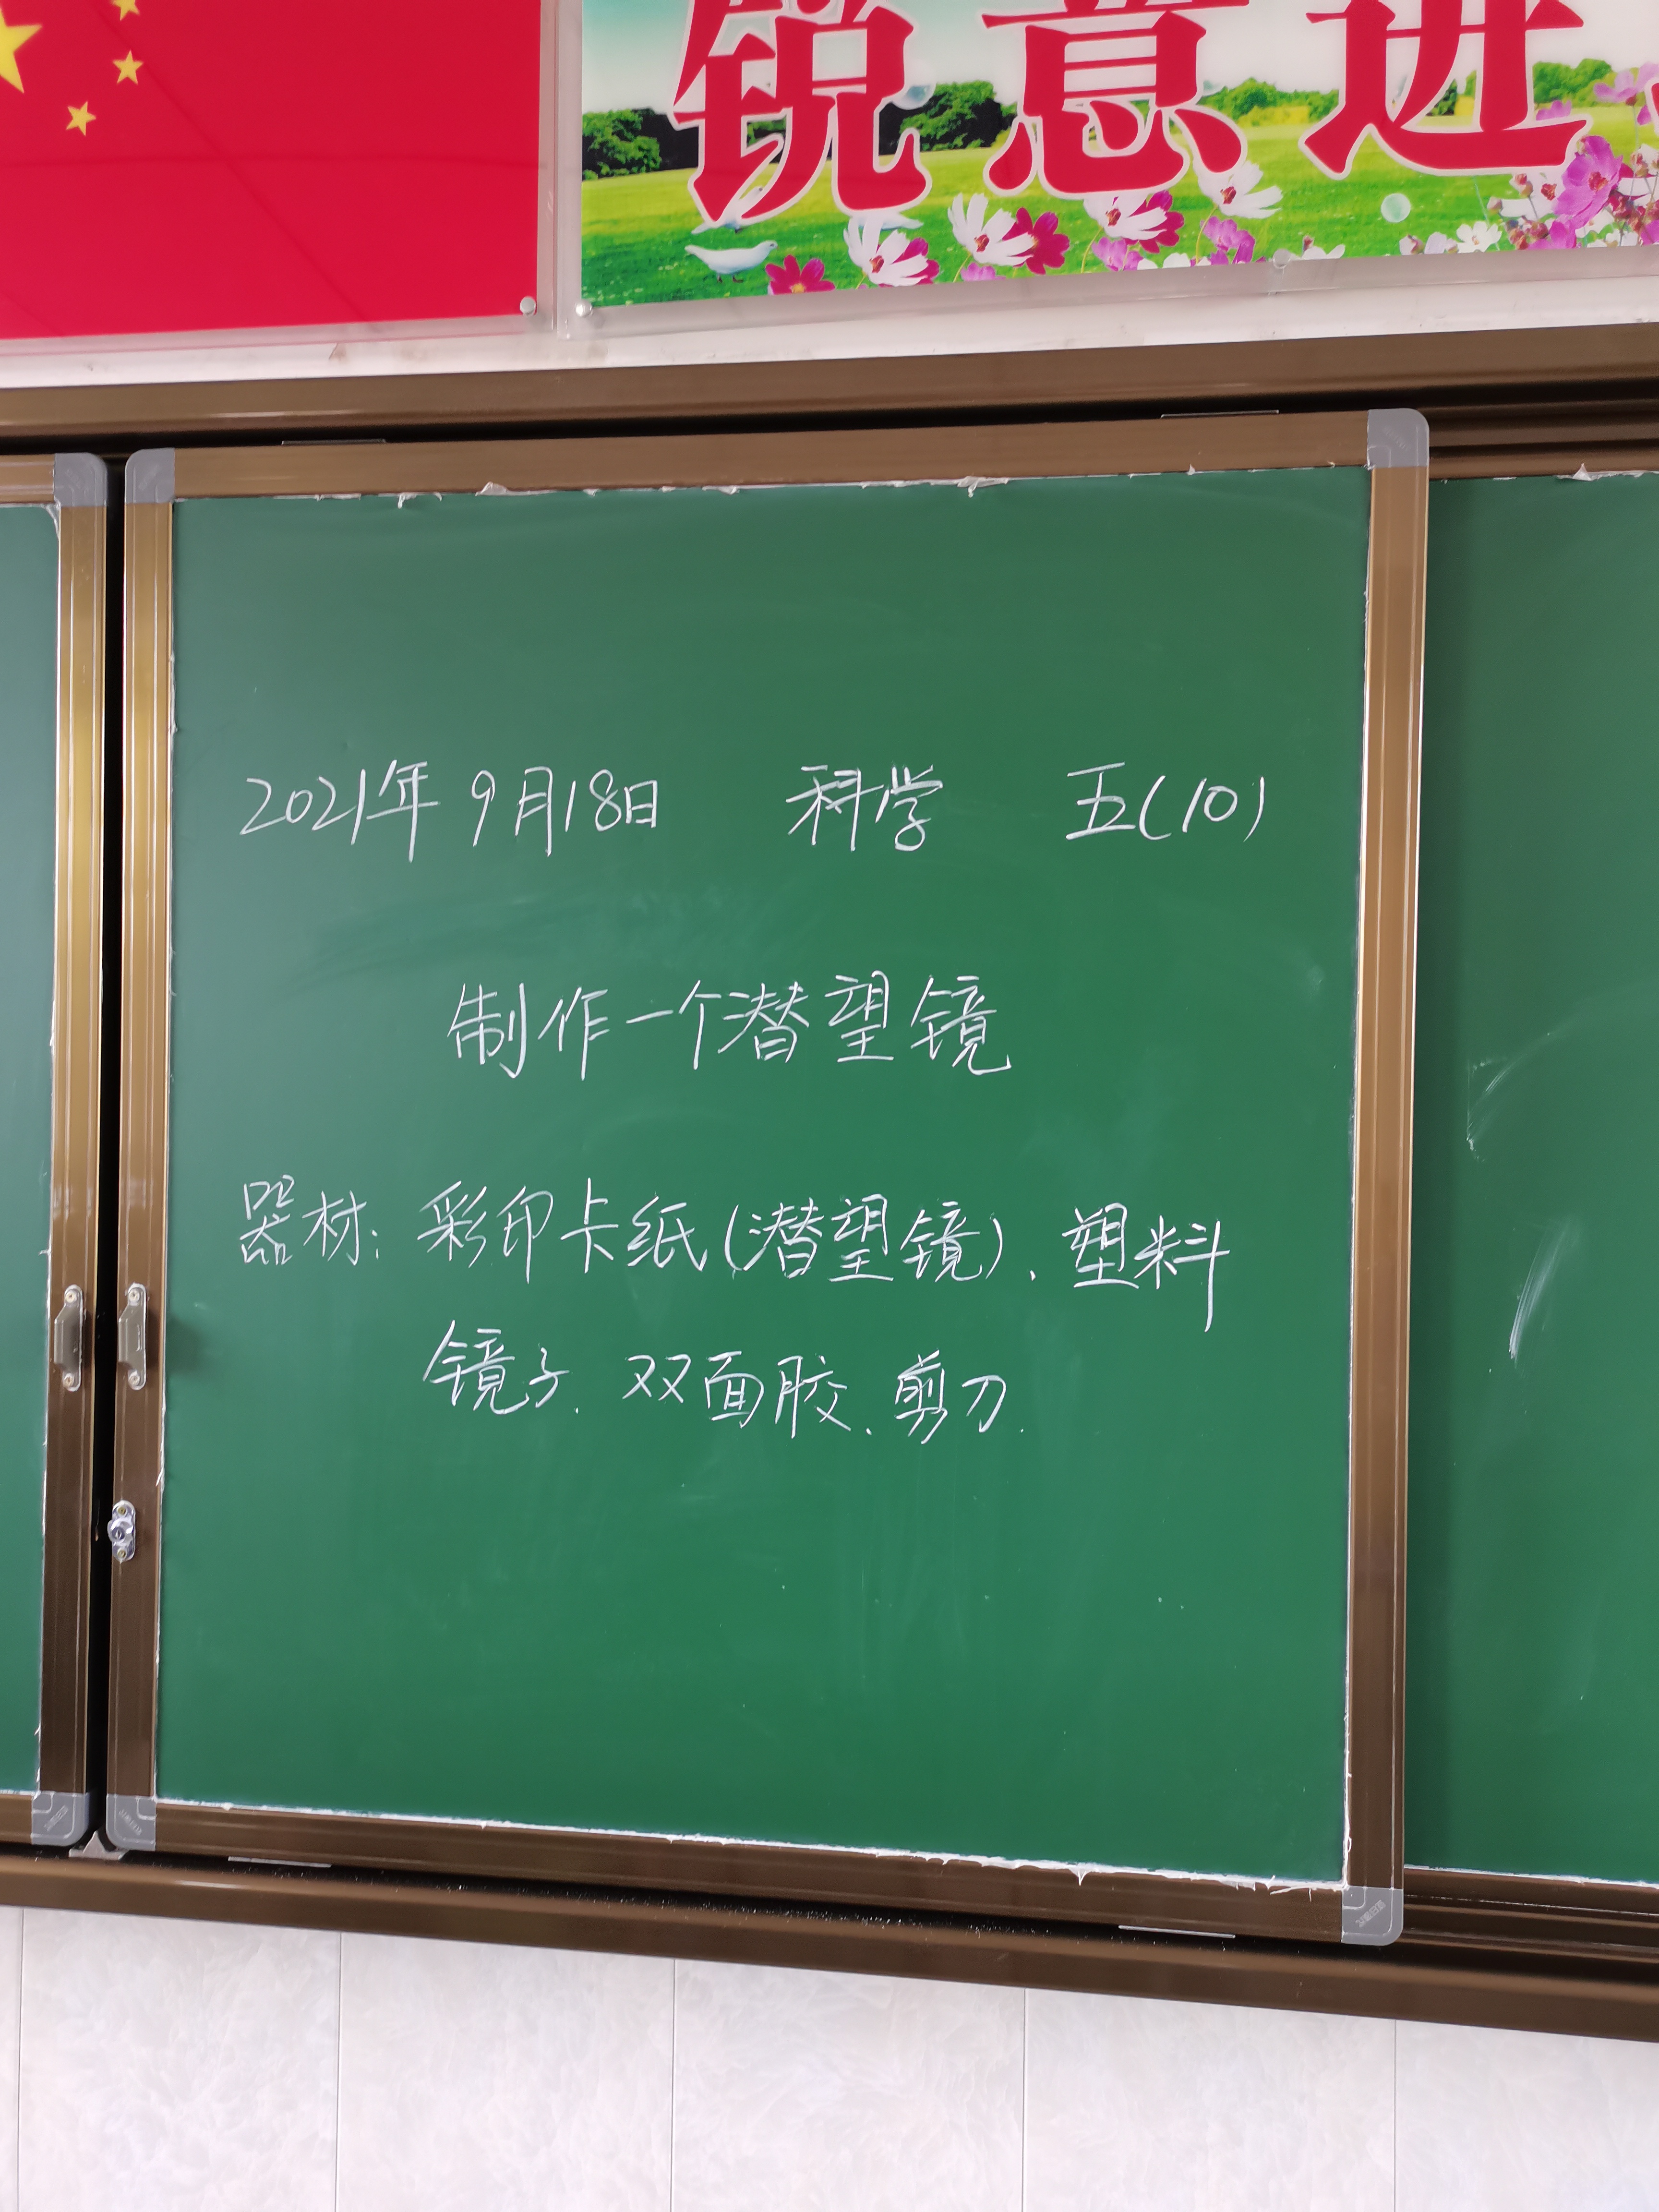 锐意进
2021年9月18日 科学 五(10)
制作一个潜望镜
器材:彩印卡纸(潜望镜)、塑料
镜子、双面胶、剪刀.